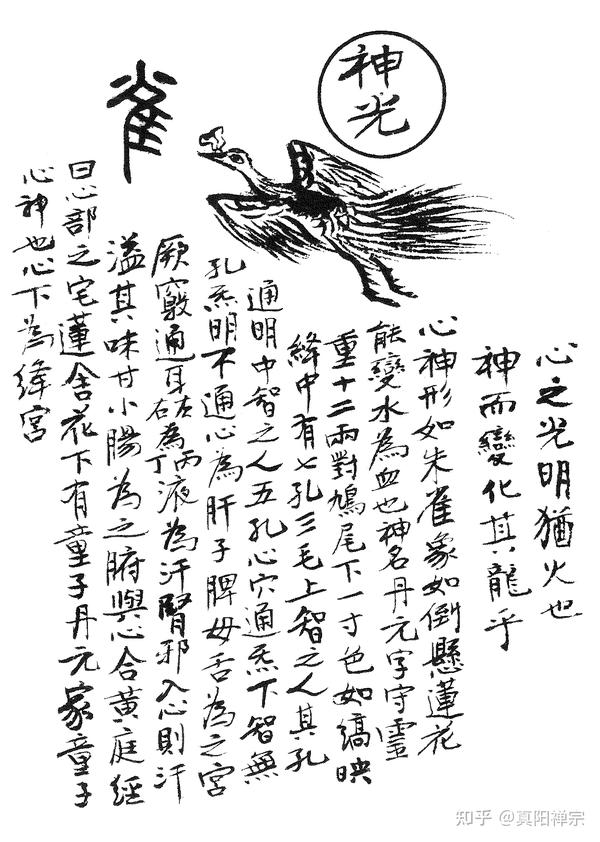 神光
雀
心之光明猶火也
神而變化其龍乎
心神形如朱雀象如倒懸蓮花
能變水為血也神名丹元字守靈
重十二兩對鳩尾下一寸色如縞映
絳中有七孔三毛上智之人其孔
通明中智之人五孔心穴通炁下智無
孔炁明不通心為肝子脾母舌為之宮
厥竅通耳左右為丙丁液為汗腎邪入心則汗
溢其味甘小腸為之腑與心合黃庭經
曰心部之宅蓮舍花下有童子丹元家童子
心神也心下為絳宮
知乎 @真阳禅宗